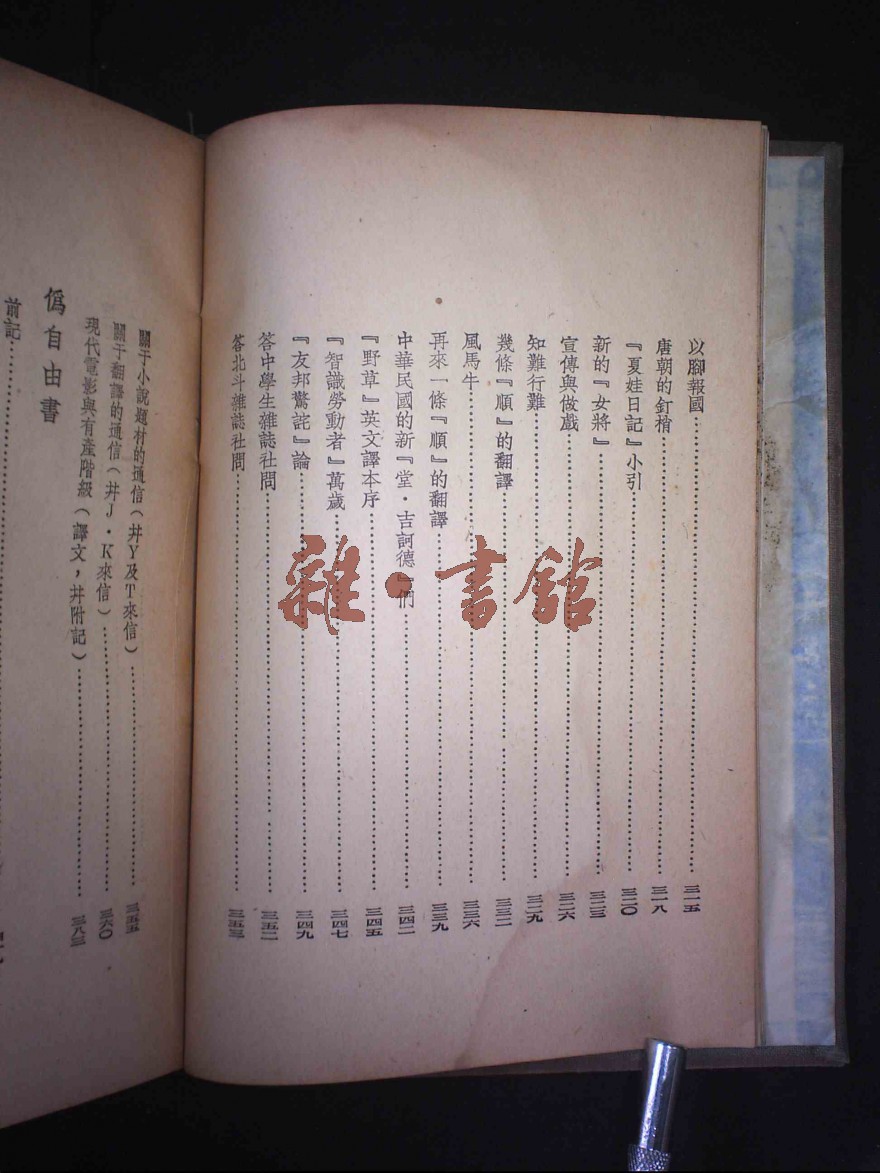 以腳報國……三一五
唐朝的釘梢……三一八
『夏娃日記』小引……三二〇
新的『女將』……三二三
宣傳與做戲……三二六
知難行難……三二九
幾條『順』的翻譯……三三二
風馬牛……三三六
再來一條『順』的翻譯……三三九
中華民國的新『堂・吉訶德』們……三四二
『野草』英文譯本序……三四五
『智識勞動者』萬歲……三四七
『友邦驚詫』論……三四九
答中學生雜誌社問……三五二
答北斗雜誌社問……三五三
關于小說題材的通信(幷Y及T來信)……三五五
關于翻譯的通信(幷J・K來信)……三六〇
現代電影與有產階級(譯文,幷附記)……三八三
僞自由書
前記……
雜・書館